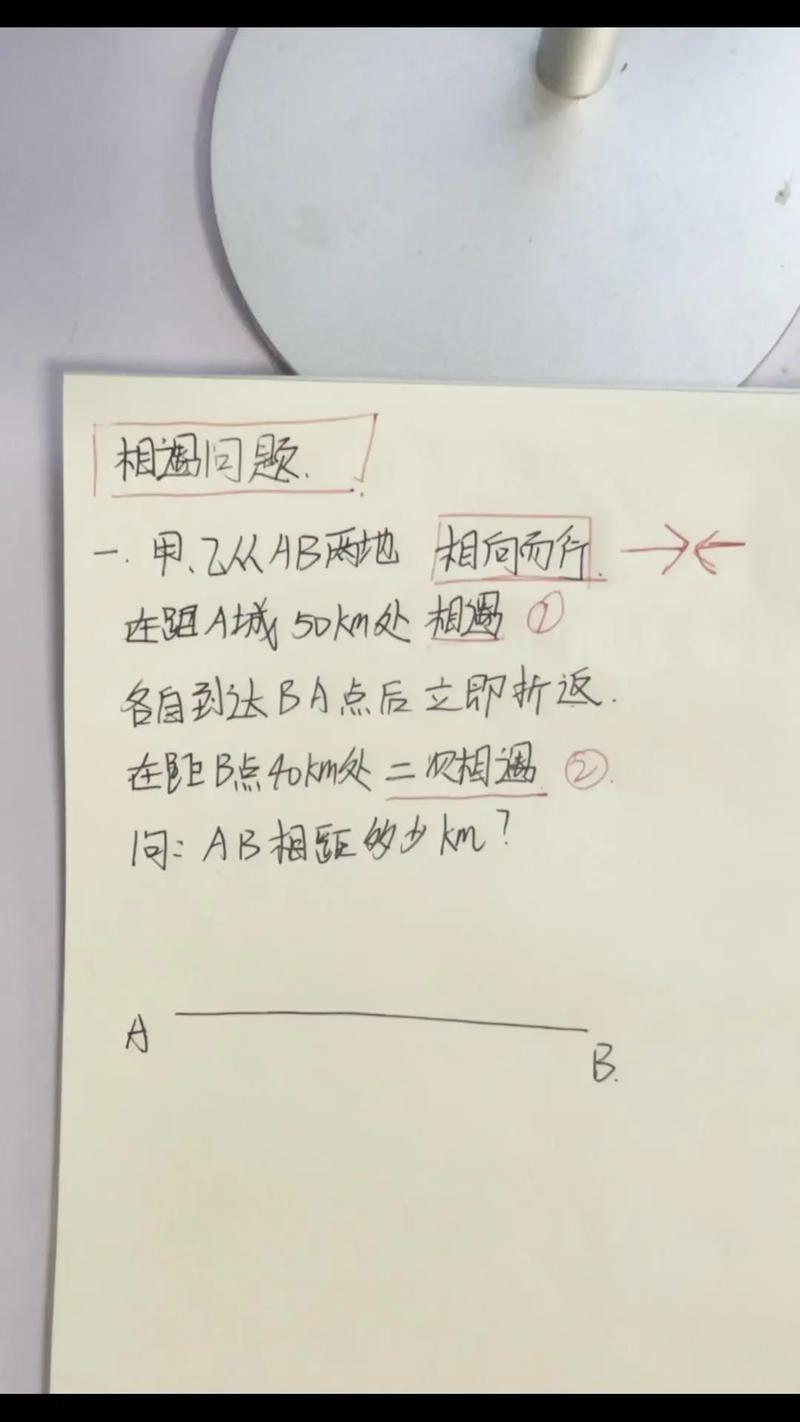 相遇问题.
一. 甲、乙从AB两地 相向而行.
在距A城50km处相遇 ①
各自到达BA点后立即折返.
在距B点40km处二次相遇 ②.
问: AB相距多少km?
A
B.